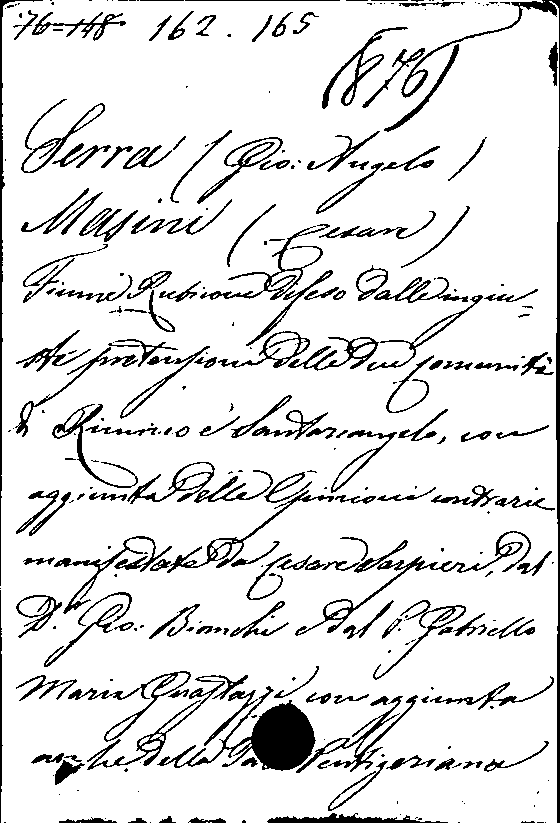 76=148 162. 165
(876)
Serra (Gio: Angelo)
Masini (Cesare)
Fiume Rubicone difeso dalle ingiu=
ste pretensioni delle due comunità
di Rimino e Santarcangelo, con
aggiunta delle Opinioni contrarie
manifestate da Cesare Sarpieri, dal
D.r Gio: Bianchi e dal P. Gabriello
Maria Guastuzzi con aggiunta
anche della Pentigeriana